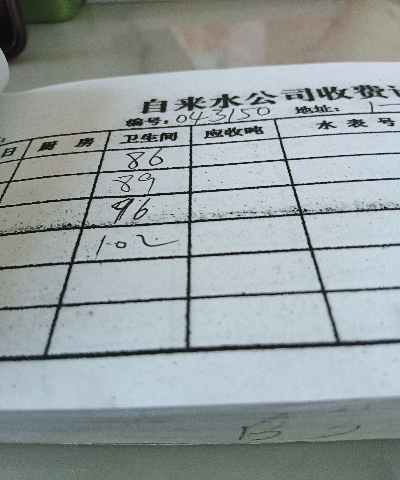 自来水公司收费
编号：043150 地址：1-
日 厨 房 卫生间 应收吨 水 表 号
86
89
96
102
B